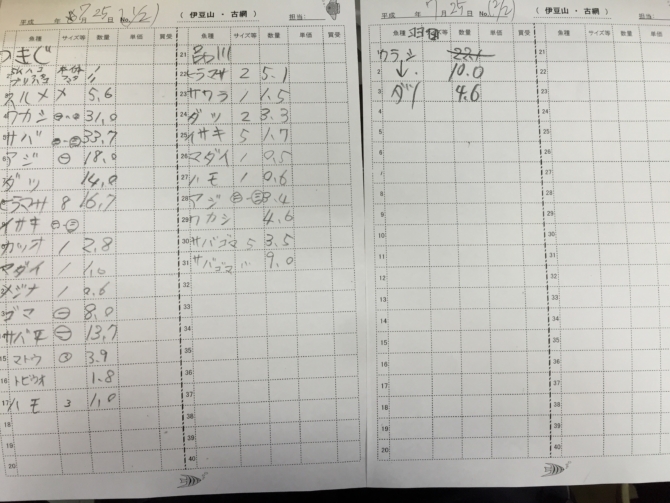 平成 年 7月25日 No.(1/2) (伊豆山・古網) 担当:
魚種 サイズ等 数量 単価 買受 魚種 サイズ等 数量 単価 買受
つきじ
ウルメ メ 5.6
ワカシ ㊀-㊁ 31.0
サバ 33.7
アジ ㊀ 18.0
ダツ 14.0
ヒラマサ 8 16.7
イサキ ㊀-㊂
カツオ 1 2.8
マダイ 1 1.0
メジナ 1 0.6
ゴマ ㊀ 8.0
サバ ㊀ 13.7
15 マトウ 3.9
16 トビウオ 1.8
17 ハモ 3 1.0
18
19
20
21 品川
22 ヒラマサ 2 5.1
23 サワラ 1 1.5
24 ダツ 2 3.3
25 イサキ 5 1.7
26 マダイ 1 0.5
27 ハモ 1 0.6
28 アジ ㊀-㊂ 8.4
29 ワカシ 4.6
30 サバゴマ 5 3.5
31 サバゴマ 9.0
32
33
34
35
36
37
38
39
40
平成 年 7月25日 No.(2/2) (伊豆山・古網) 担当:
魚種 サイズ等 数量 単価 買受 魚種 サイズ等 数量 単価 買受
ワラシ
2 ↓ 10.0
3 4.6
4
5
6
7
8
9
10
11
12
13
14
15
16
17
18
19
20
21
22
23
24
25
26
27
28
29
30
31
32
33
34
35
36
37
38
39
40